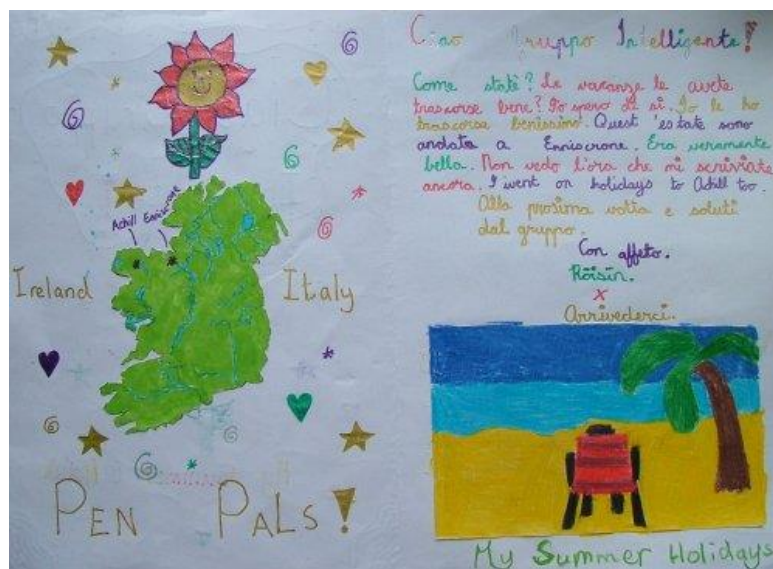 Achill Enniscrone
Ireland Italy
PEN PALS!
Ciao Gruppo Intelligente!
Come state? Le vacanze le avete
trascorse bene? Io spero di si. Io le ho
trascorse benissimo. Quest 'estate sono
andata a Enniscrone. Era veramente
bella. Non vedo l'ora che mi scriviate
ancora. I went on holidays to Achill too.
Alla prosima volta e saluti
dal gruppo.
Con affeto.
Róisín.
x
Arrivederci.
My Summer Holidays